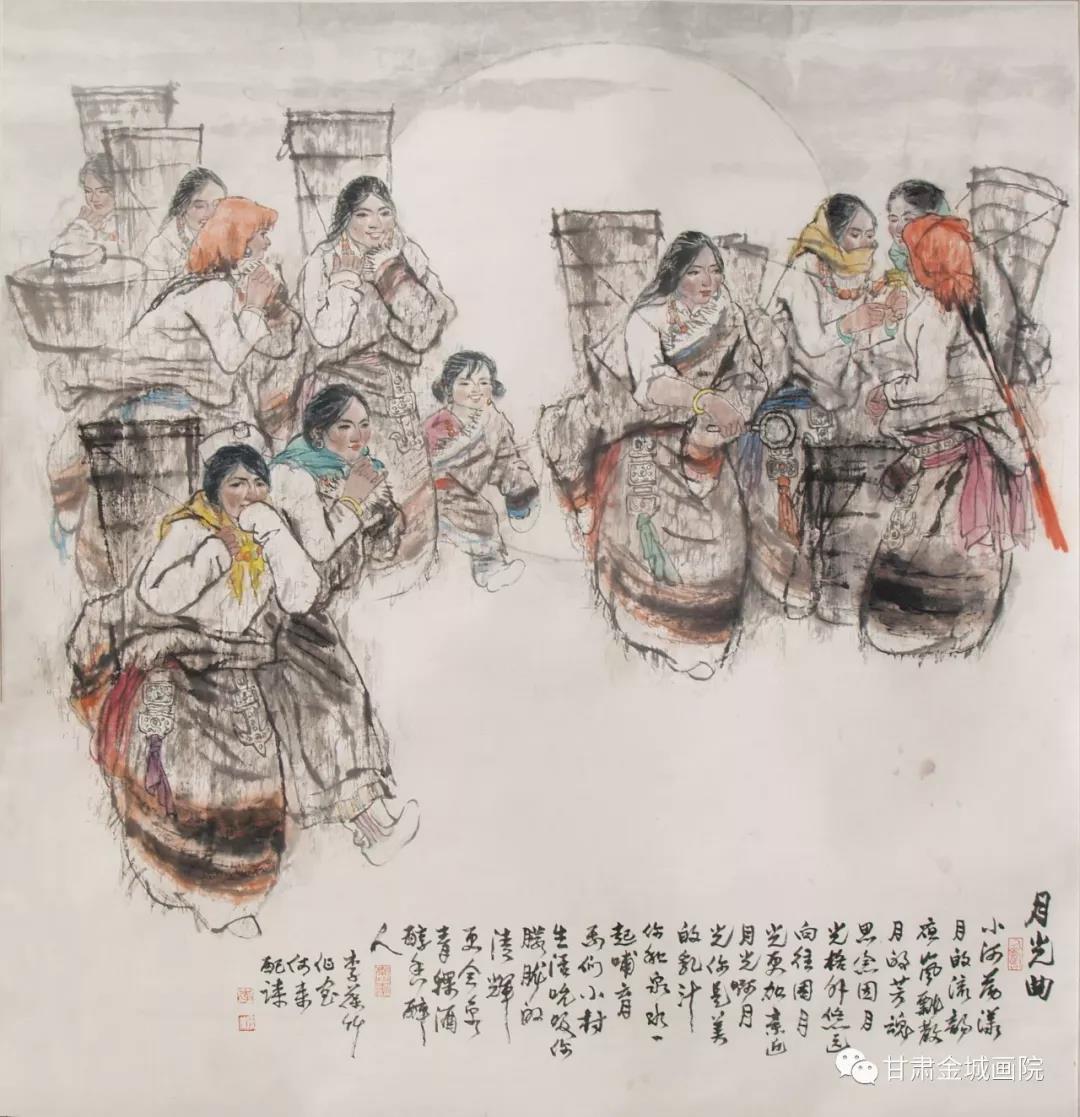 月光曲
小河荡漾
月的流韵
夜风飘散
月的芳魂
思念因月
光格外悠远
向往因月
光更加亲近
月光啊月
光你是美
的乳汁
你和泉水一
起哺育
们小村
生活吮吸你
朦胧的
清辉
更会象
青稞酒
醇香醉
人
李葆竹
作画
何来
配诗
甘肃金城画院